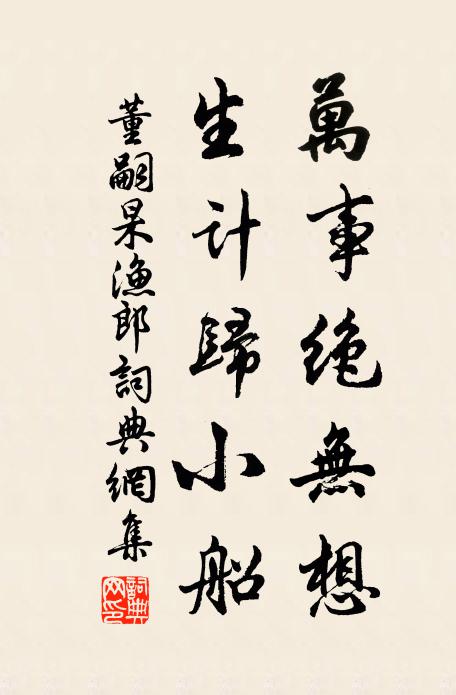 萬事絶無想
生計歸小船
董嗣杲漁郎詞典網集
詞典网印